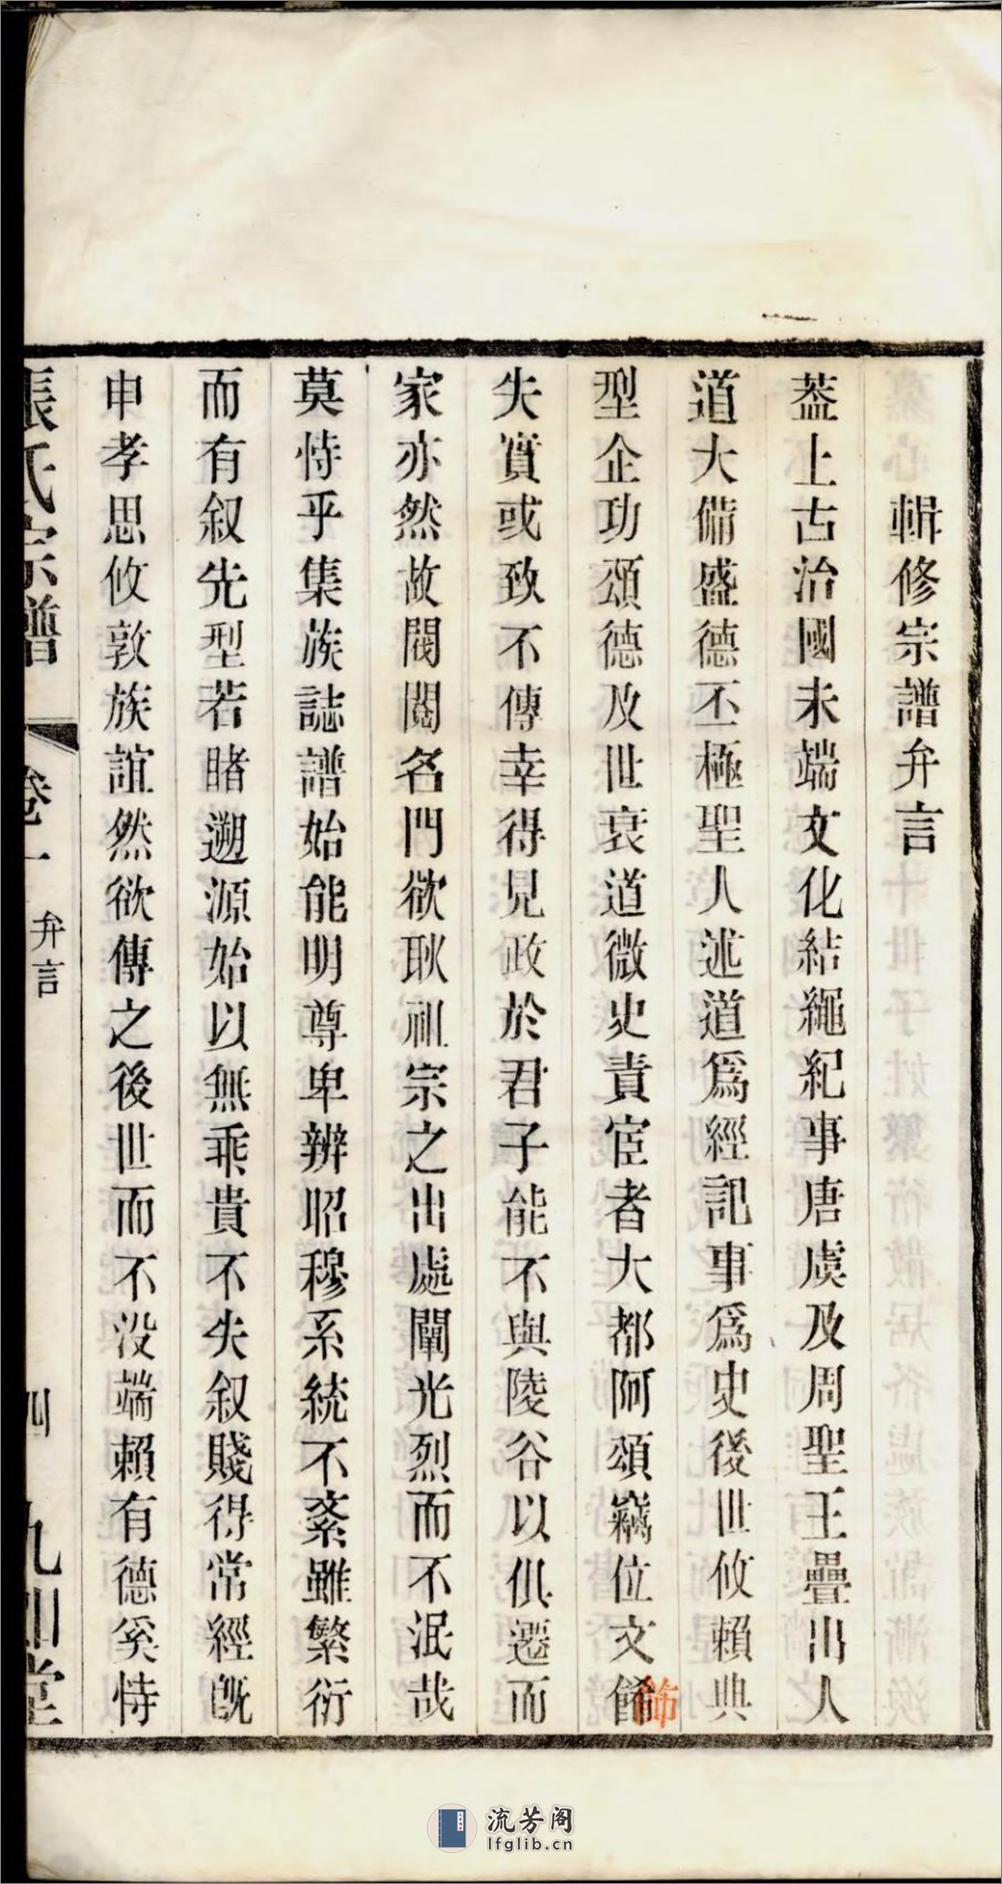 輯修宗譜弁言
葢上古治國未端文化結繩紀事唐虞及周聖王疊出人
道大備盛德丕極聖人述道爲經記事爲史後世攸賴典
型企功頌德及世衰道微史責宦者大都阿頌竊位文餙
飾
失實或致不傳幸得見政於君子能不與陵谷以俱遷而
家亦然故閥閱名門欲耿祖宗之出處闡光烈而不泯哉
莫恃乎集族誌譜始能明尊卑辨昭穆系統不紊雖繁衍
而有叙先型若睹遡源始以無乘貴不失叙賤得常經旣
申孝思攸敦族誼然欲傳之後世而不没端賴有德奚恃
張氏宗譜
卷一 弁言
四 九如堂
流芳阁
lfglib.cn